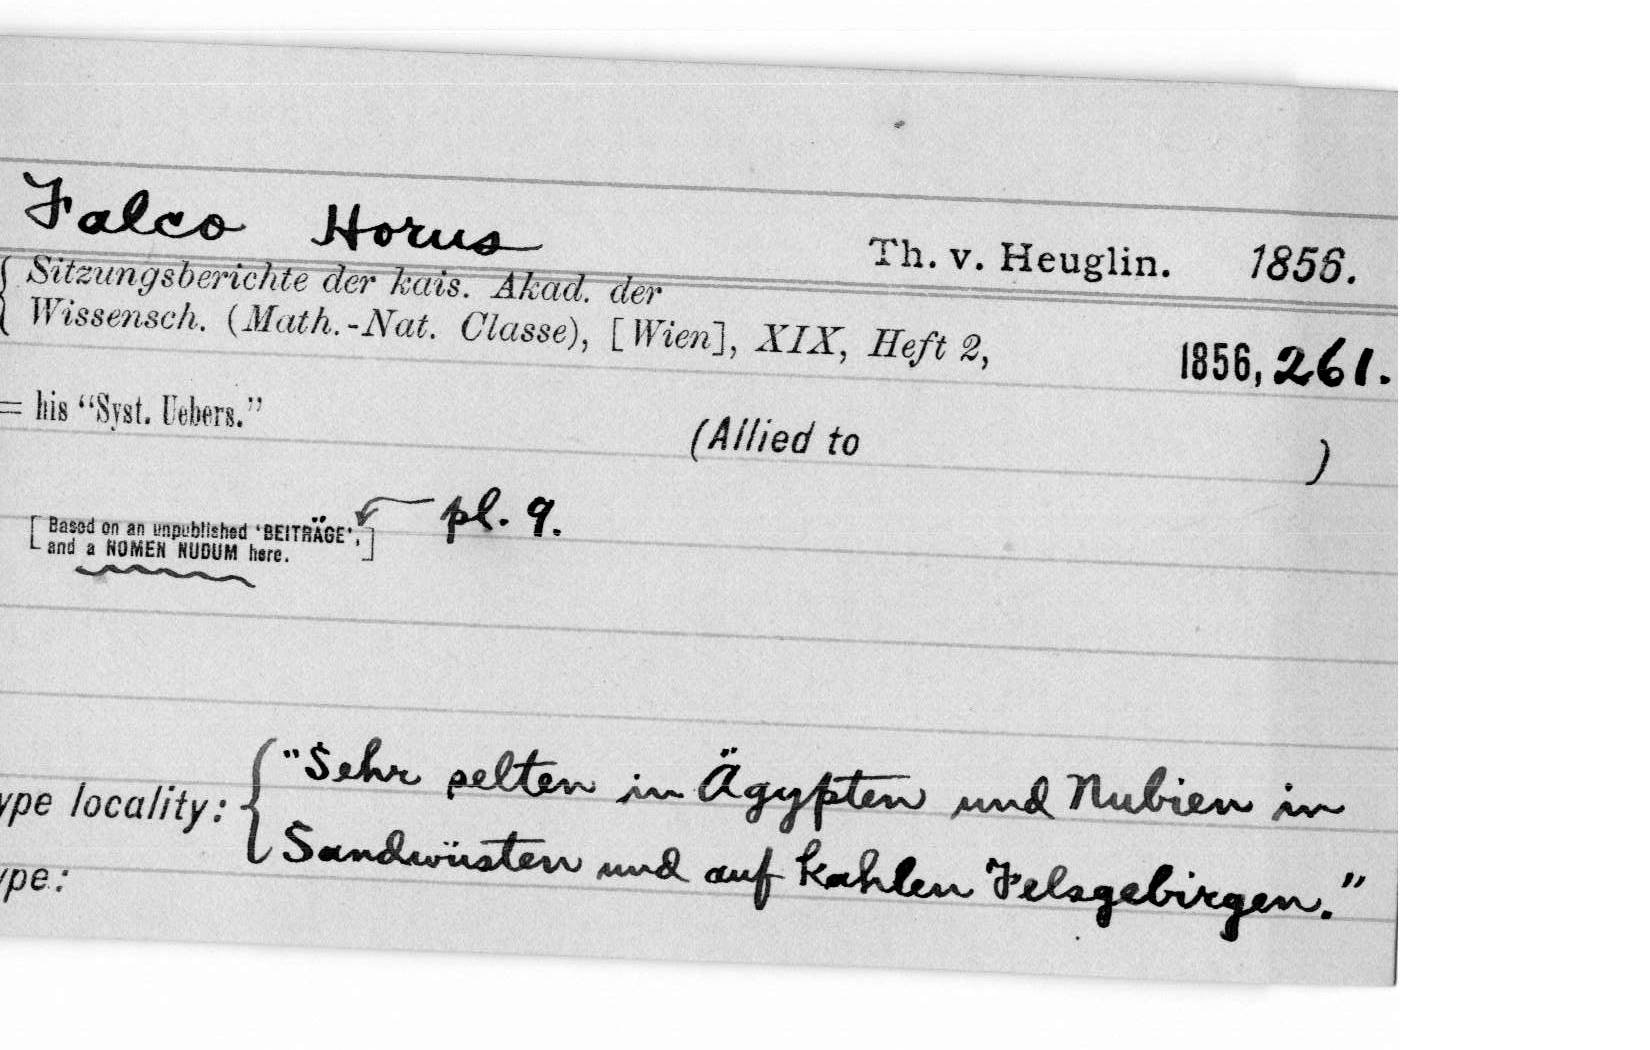 Falco Horus Th. v. Heuglin. 1856.
Sitzungsberichte der kais. Akad. der
Wissensch. (Math.-Nat. Classe), [Wien], XIX, Heft 2, 1856, 261.
= his “Syst. Uebers.”
(Allied to )
pl. 9.
[Based on an unpublished ‘BEITRÄGE’,
and a NOMEN NUDUM here.]
"Sehr selten in Ägypten und Nubien in
ype locality:
Sandwüsten und auf kahlen Felsgebirgen."
ype: